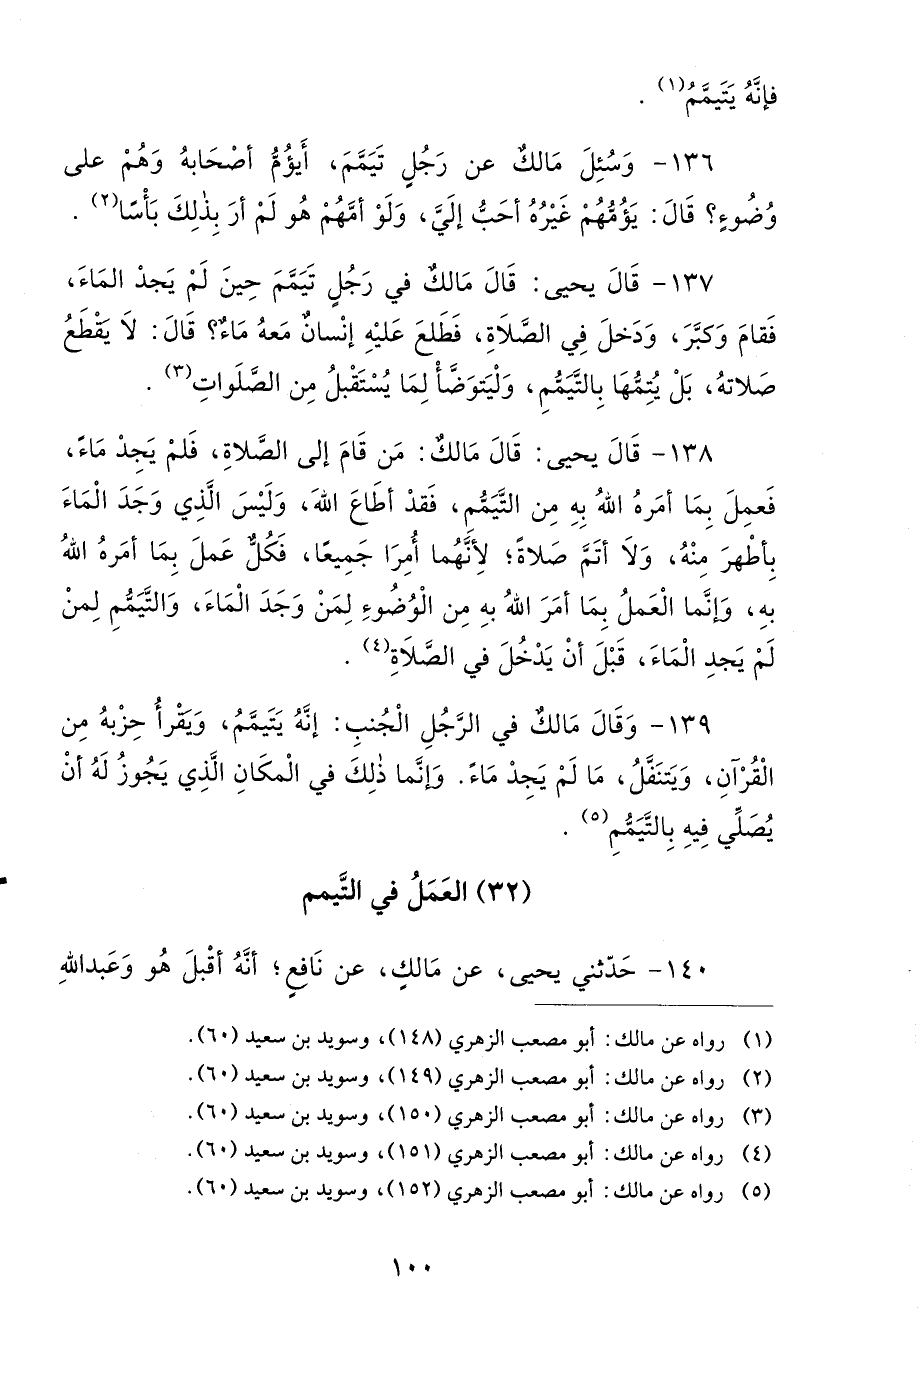 فإنَّهُ يَتَيمَّمُ(١) .
١٣٦- وَسُئِلَ مَالكٌ عن رَجُلٍ تَيَمَّمَ، أَيؤُمُّ أصْحَابهُ وَهُمْ على
وُضُوءٍ؟ قَالَ: يَؤُمُّهُمْ غَيْرُهُ أحَبُّ إلَيَّ، وَلَوْ أمَّهُمْ هُو لَمْ أرَ بِذٰلِكَ بَأْسًا(٢) .
١٣٧- قَالَ يحيى: قَالَ مَالكٌ في رَجُلٍ تَيَمَّمَ حِينَ لَمْ يَجدْ المَاءَ،
فَقامَ وَكبَّرَ، وَدَخلَ فِي الصَّلَاةِ، فَطَلعَ عَليْهِ إنْسانٌ مَعهُ مَاءٌ؟ قَالَ: لاَ يَقْطَعُ
صَلاتهُ، بَلْ يُتِمُّهَا بِالتَّيَمُّمِ، وَلْيَتوَضَّأْ لمَا يُسْتَقْبلُ مِن الصَّلَواتِ(٣) .
١٣٨- قَالَ يحيى: قَالَ مَالكٌ: مَن قَامَ إلى الصَّلاةِ، فَلمْ يَجِدْ مَاءً،
فَعمِلَ بِمَا أمَرهُ اللهُ بِهِ مِن التَّيَمُّمِ، فَقدْ أطَاعَ اللهَ، وَلَيْسَ الَّذِي وَجَدَ الْمَاءَ
بِأطْهرَ مِنْهُ، وَلاَ أتَمَّ صَلاةً؛ لِأَنَّهُما أُمِرَا جَمِيعًا، فَكُلٌّ عَملَ بِمَا أمَرهُ اللهُ
بِهِ، وَإنَّما الْعَملُ بِمَا أمَرَ اللهُ بهِ مِن الْوُضُوءِ لِمَنْ وَجَدَ الْمَاءَ، وَالتَّيَمُّمِ لِمنْ
لَمْ يَجدِ الْمَاءَ، قَبْلَ أنْ يَدْخُلَ في الصَّلَاةِ(٤) .
١٣٩- وَقَالَ مَالكٌ في الرَّجُلِ الْجُنبِ: إنَّهُ يَتَيمَّمُ، وَيَقْرأُ حِزْبهُ مِن
الْقُرْآنِ، وَيَتنَفَّلُ، مَا لَمْ يَجِدْ مَاءً. وَإنَّما ذٰلِكَ في الْمكَانِ الَّذِي يَجُوزُ لَهُ أنْ
يُصَلِّي فِيهِ بِالتَّيَمُّمِ(٥) .
(٣٢) العَمَلُ في التَّيمم
١٤٠- حَدّثني يحيى، عن مَالكٍ، عن نَافعٍ؛ أنَّهُ أقْبلَ هُو وَعَبداللهِ
(١) رواه عن مالك: أبو مصعب الزهري (١٤٨)، وسويد بن سعيد (٦٠).
(٢) رواه عن مالك: أبو مصعب الزهري (١٤٩)، وسويد بن سعيد (٦٠).
(٣) رواه عن مالك: أبو مصعب الزهري (١٥٠)، وسويد بن سعيد (٦٠).
(٤) رواه عن مالك: أبو مصعب الزهري (١٥١)، وسويد بن سعيد (٦٠).
(٥) رواه عن مالك: أبو مصعب الزهري (١٥٢)، وسويد بن سعيد (٦٠).
١٠٠